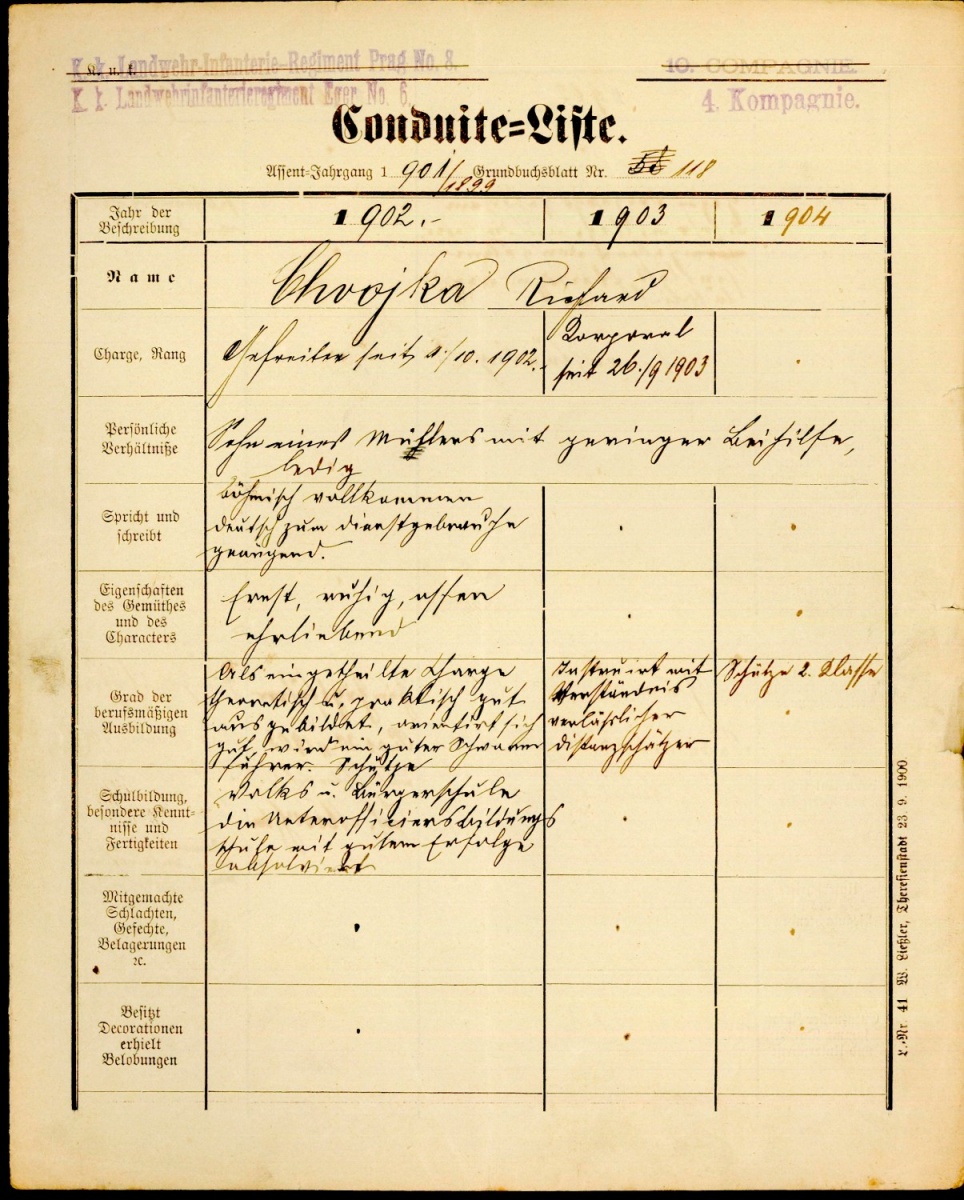 K. u. k.
K. k. Landwehr-Infanterie-Regiment Prag No. 8.
10. COMPAGNIE.
K. k. Landwehrinfanterieregiment Eger No. 6
4. Kompagnie.
Conduite=Liste.
Assent-Jahrgang 1901/1899 Grundbuchsblatt Nr. 118
Jahr der Beschreibung
1902.-
1903
1904
Name
Chvojka Richard
Charge, Rang
Gefreiter seit 1./10. 1902.
Korporal
seit 26./9 1903
.
Persönliche
Verhältniße
Sohn eines Müllers mit geringer Beihilfe,
ledig
Spricht und
schreibt
böhmisch vollkommen
deutsch zum Dienstgebrauche
genügend.
.
.
Eigenschaften
des Gemüthes
und des
Characters
Ernst, ruhig, offen
ehrliebend
.
.
Grad der
berufsmäßigen
Ausbildung
Als eingetheilte Charge
theoretisch u. praktisch gut
ausgebildet, orientirt sich
gut, wird ein guter Schwarm
führer. Schütze
Instruirt mit
Verständnis
verläßlicher
Distanzschätzer
Schütze 2. Klasse
.
Schulbildung,
besondere Kennt-
nisse und
Fertigkeiten
Volks u. Bürgerschule
die Unterofficiersbildungs
schule mit gutem Erfolge
absolviert
.
.
Mitgemachte
Schlachten,
Gefechte,
Belagerungen
ꝛc.
.
.
.
Besitzt
Decorationen
erhielt
Belobungen
.
.
.
L.-Nr 41 W. Ließler, Theresienstadt 23 9. 1900